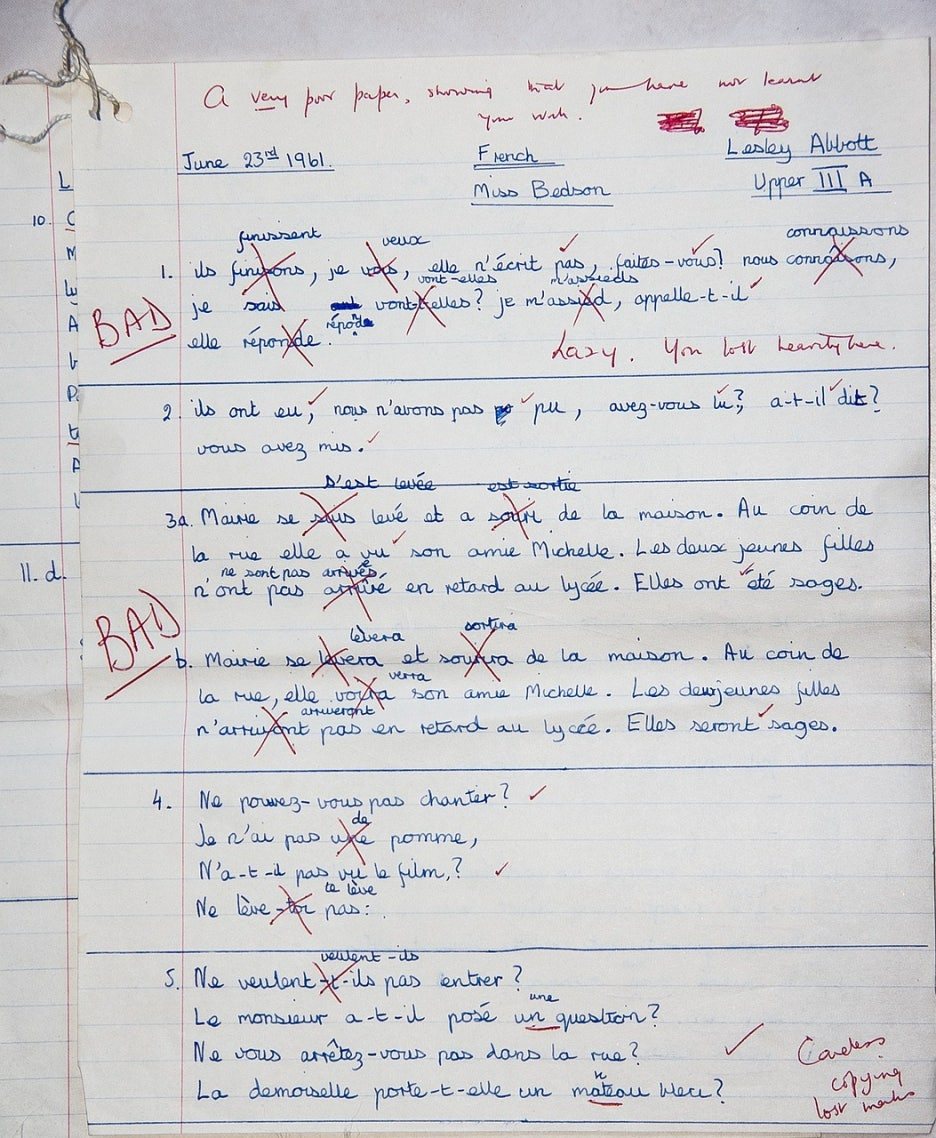 A very poor paper, showing that you have not learnt
your work.
June 23rd 1961.
French
Lesley Abbott
Miss Bedson
Upper III A
finissent
veux
connaissons
1. ils finisons, je vous, elle n'écrit pas, faites-vous? nous connaisons,
vont-elles
m'assieds
je sais vont-t-elles? je m'assied, appelle-t-il
BAD
réponde
elle réponde.
Lazy. You lost heavily here.
2. ils ont eu, nous n'avons pas pu, avez-vous lu?, a-t-il dit?
vous avez mis.
s'est levée
est sortie
3a. Mairie se suis levé et a souri de la maison. Au coin de
la rue elle a vu son amie Michelle. Les deux jeunes filles
ne sont pas arrivées
n'ont pas arrivé en retard au lycée. Elles ont été sages.
BAD
lèvera
sortira
b. Mairie se levera et sourira de la maison. Au coin de
verra
la rue, elle voira son amie Michelle. Les deux jeunes filles
arriveront
n'arrivont pas en retard au lycée. Elles seront sages.
4. Ne pouvez-vous pas chanter?
de
Je n'ai pas une pomme,
N'a-t-il pas vu le film,?
te lève
Ne lève-toi pas:
veulent-ils
5. Ne veulent-t-ils pas entrer?
une
Le monsieur a-t-il posé un question?
Ne vous arrêtez-vous pas dans la rue?
n
La demoiselle porte-t-elle un mateau bleu?
Careless
copying
lost marks
L
10.
C
M
A
P
A
11. d.